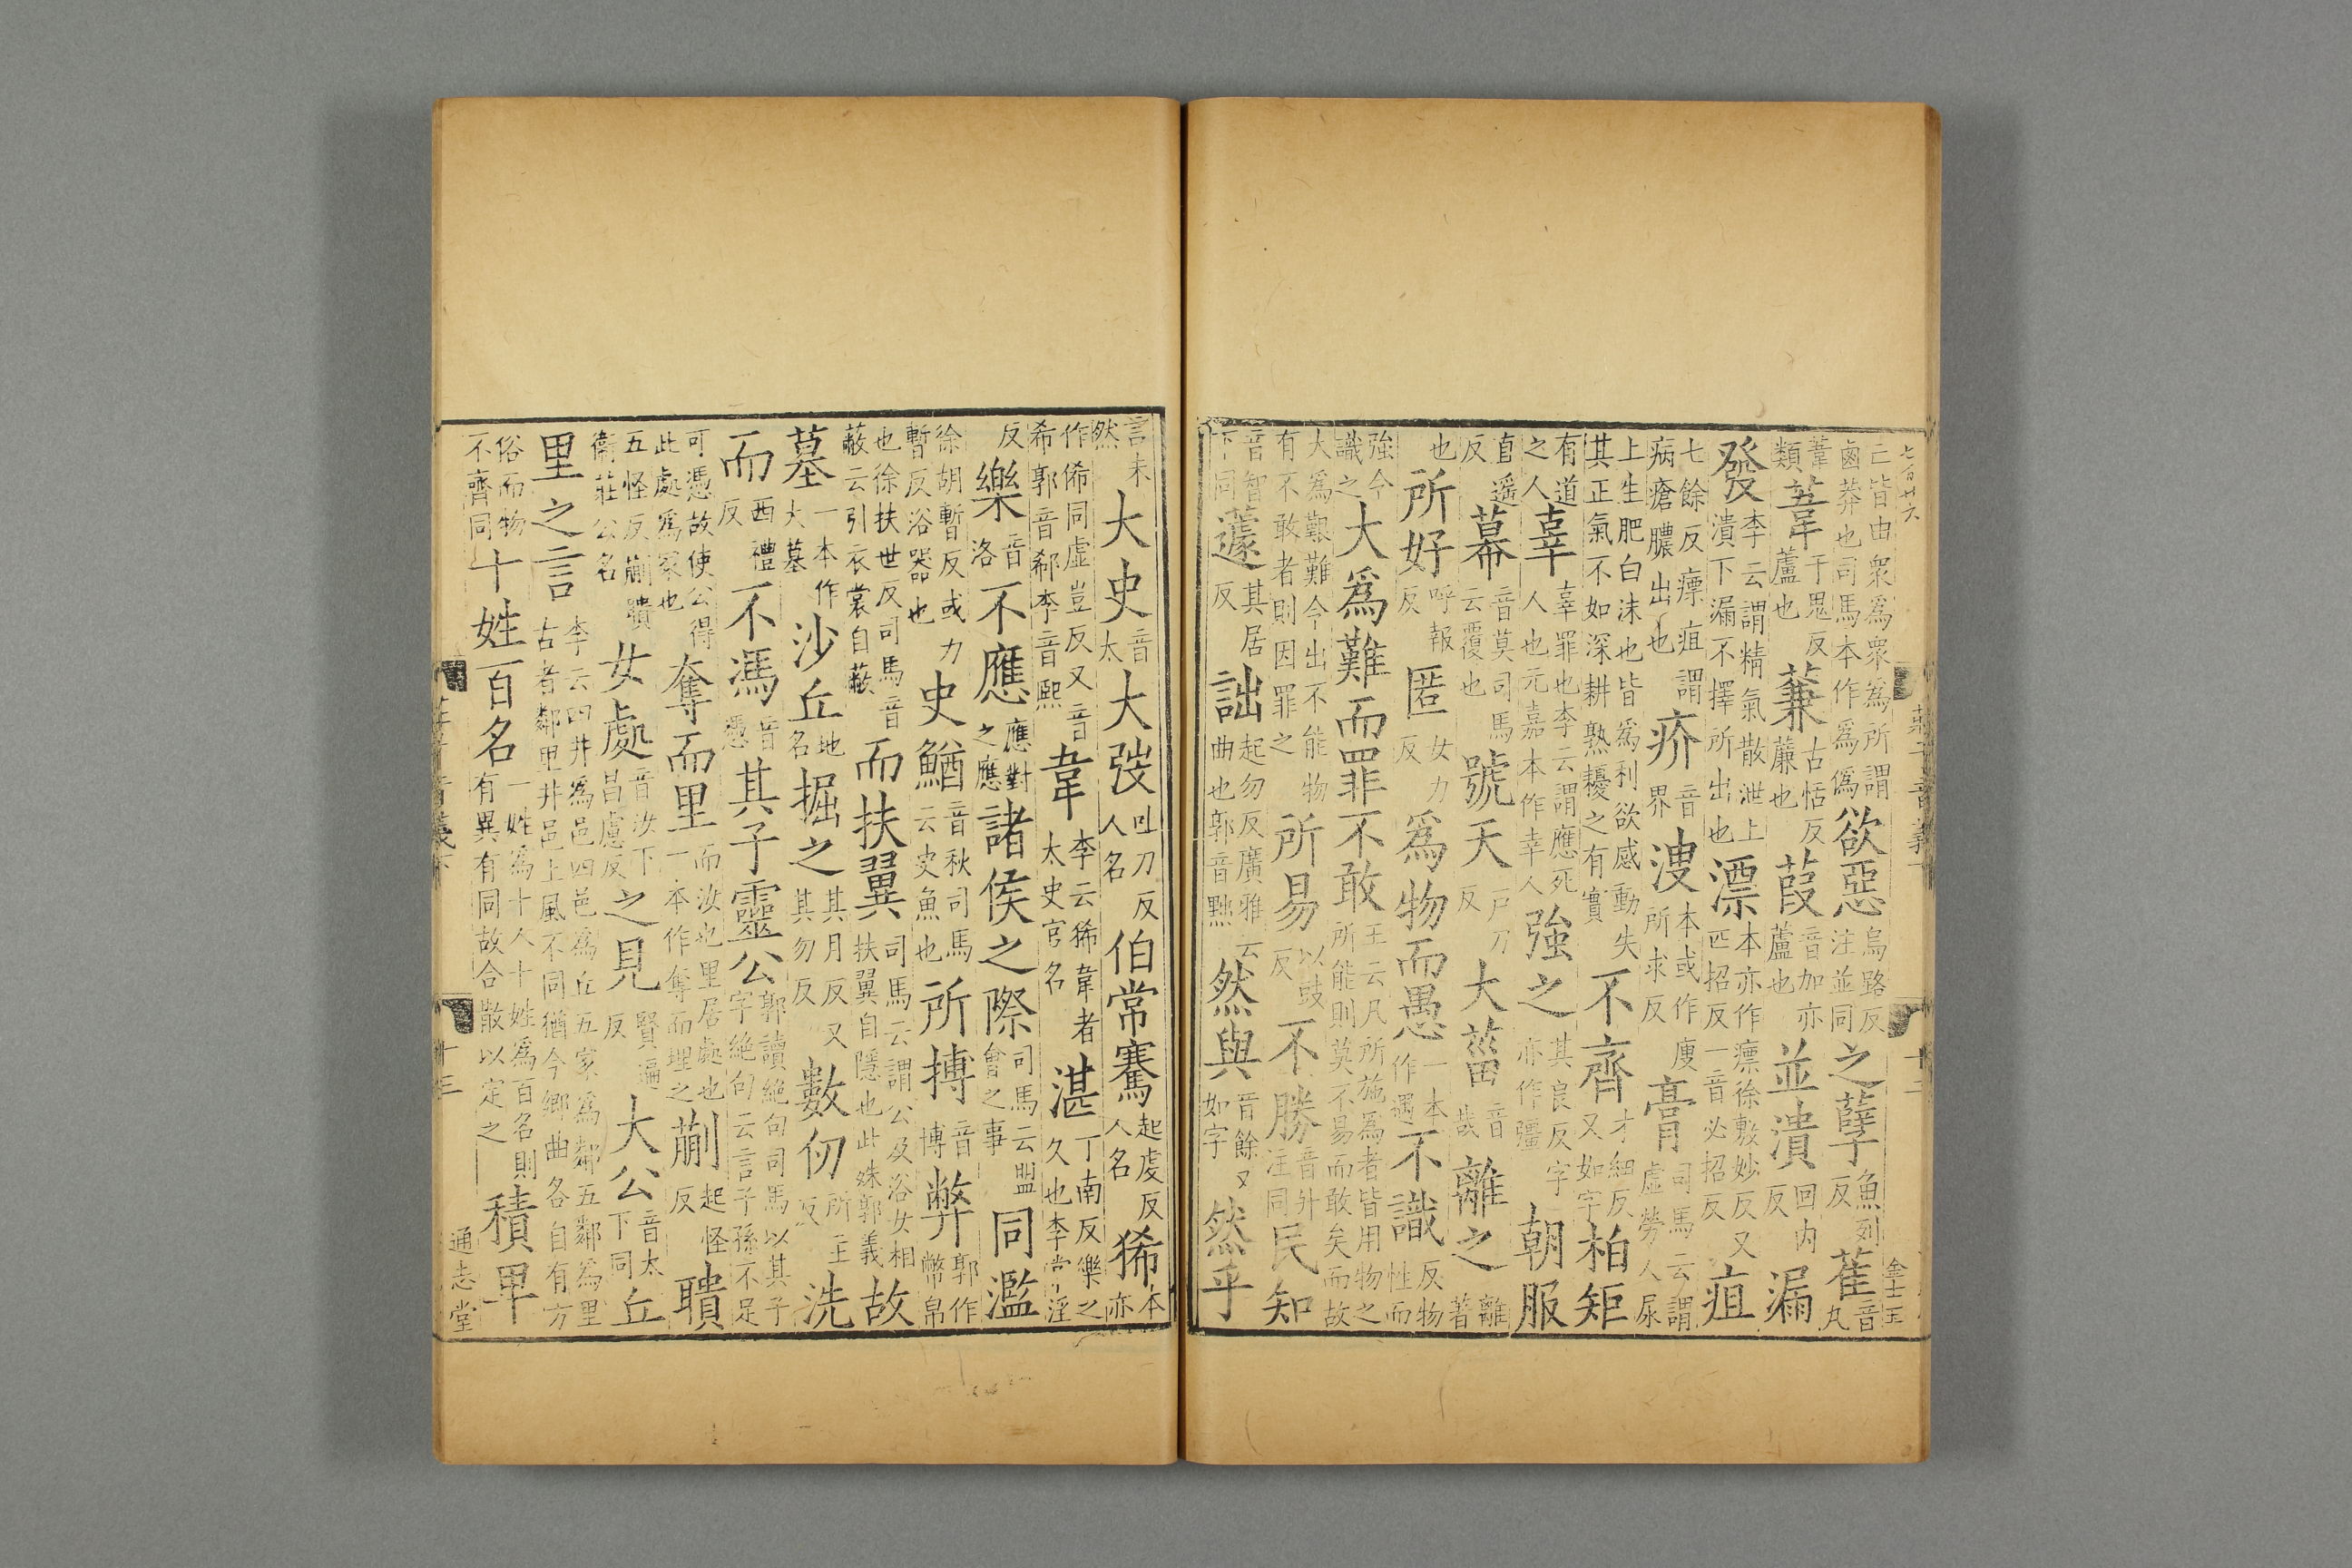 亡皆由眾爲眾爲所謂鹵莽也司馬本作爲僞欲惡烏路反注並同之孽魚列反萑音丸
葦類葦于鬼反蘆也蒹古恬反薕也葭音加亦蘆也並潰回内反漏
發李云謂精氣散泄上潰下漏不擇所出也漂本亦作瘭徐敷妙反又匹招反一音必招反疽
七餘反瘭疽謂病瘡膿出也疥音界溲本或作廋所求反膏司馬云謂虛勞人尿
上生肥白沫也皆爲利欲感動失其正氣不如深耕熟耰之有實不齊才細反又如字柏矩
有道之人辜辜罪也李云謂應死人也元嘉本作幸人強之其良反字亦作彊朝服
直遥反幕音莫司馬云覆也號天戸刀反大菑音哉離之離著
也所好呼報反匿女力反爲物而愚一本作遇不識反物性而
強令識之大爲難而罪不敢王云凡所施爲者皆用物之所能則莫不易而敢矣而故
大爲艱難令出不能物有不敢者則因罪之所易以豉反不勝音升注同民知
音智下同蘧其居反詘起勿反廣雅云曲也郭音黜然與音餘又如字然乎
言未然大史音太大弢吐刀反人名伯常騫起虔反人名狶本亦
作俙同虛豈反又音希郭音郗李音熙韋李云狶韋者太史官名湛丁南反樂之久也李常淫
反樂音洛不應應對之應諸侯之際司馬云盟會之事同濫
徐胡暫反或力暫反浴器也史鰌音秋司馬云史魚也所搏音博弊郭作幣帛
也徐扶世反司馬音蔽云引衣裳自蔽而扶翼司馬云謂公及浴女相扶翼自隱也此殊郭義故
墓一本作大墓沙丘地名掘之其月反又其勿反數仞所主反洗
而西禮反不馮音憑其子靈公郭讀絶句司馬以其子字絶句云言子孫不足
可憑故使公得此處爲冢也奪而里而汝也里居處也一本作奪而埋之蒯起怪反聵
五怪反蒯聵衛莊公名女處音汝下昌慮反之見賢遍反大公音太下同丘
里之言李云四井爲邑四邑爲丘五家爲鄰五鄰爲里古者鄰里井邑土風不同猶今鄉曲各自有方
俗而物不齊同十姓百名一姓爲十人十姓爲百名則有異有同故合散以定之積卑
七百廿六
金士玉
十三
通志堂